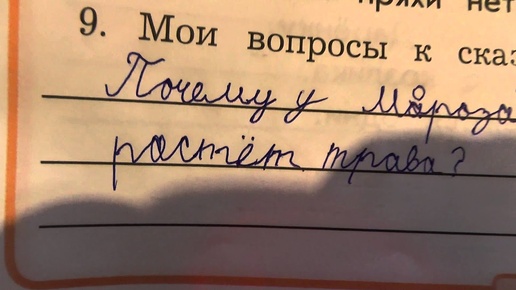 пряхи нет
9. Мои вопросы к сказ
Почему у Мороза
растёт трава?